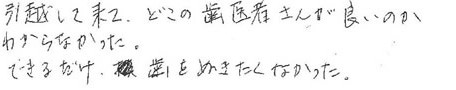 引越して来て、どこの歯医者さんが良いのか
わからなかった。
できるだけ、歯をぬきたくなかった。